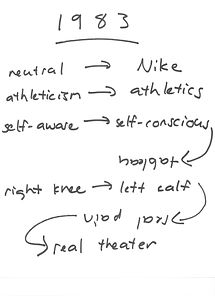 1983
neutral → Nike
athleticism → athletics
self-aware → self-conscious
right knee → left calf
real pain
real theater